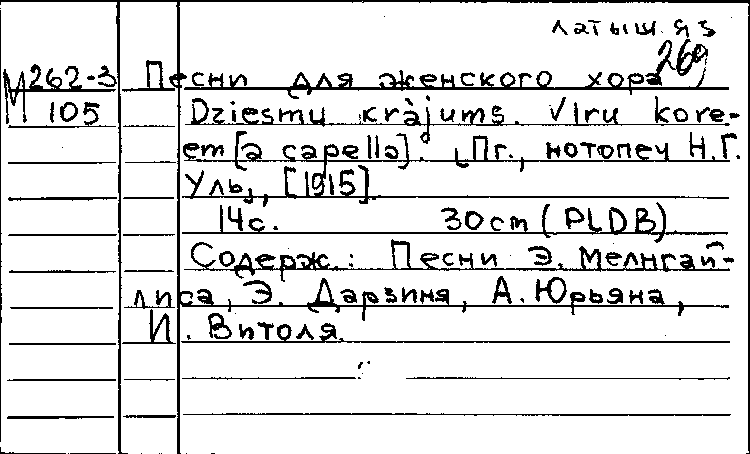 латыш. яз
269
М262-3 Песни для женского хора
105 Dziesmu krājums. Vīru kore-
em [a capella]. Пг., нотопеч Н.Г.
Уль, [1915]
14с. 30cm (PLDB)
Содерж.: Песни Э. Мелнгай-
лиса, Э. Дарзиня, А. Юрьяна,
И. Витоля.